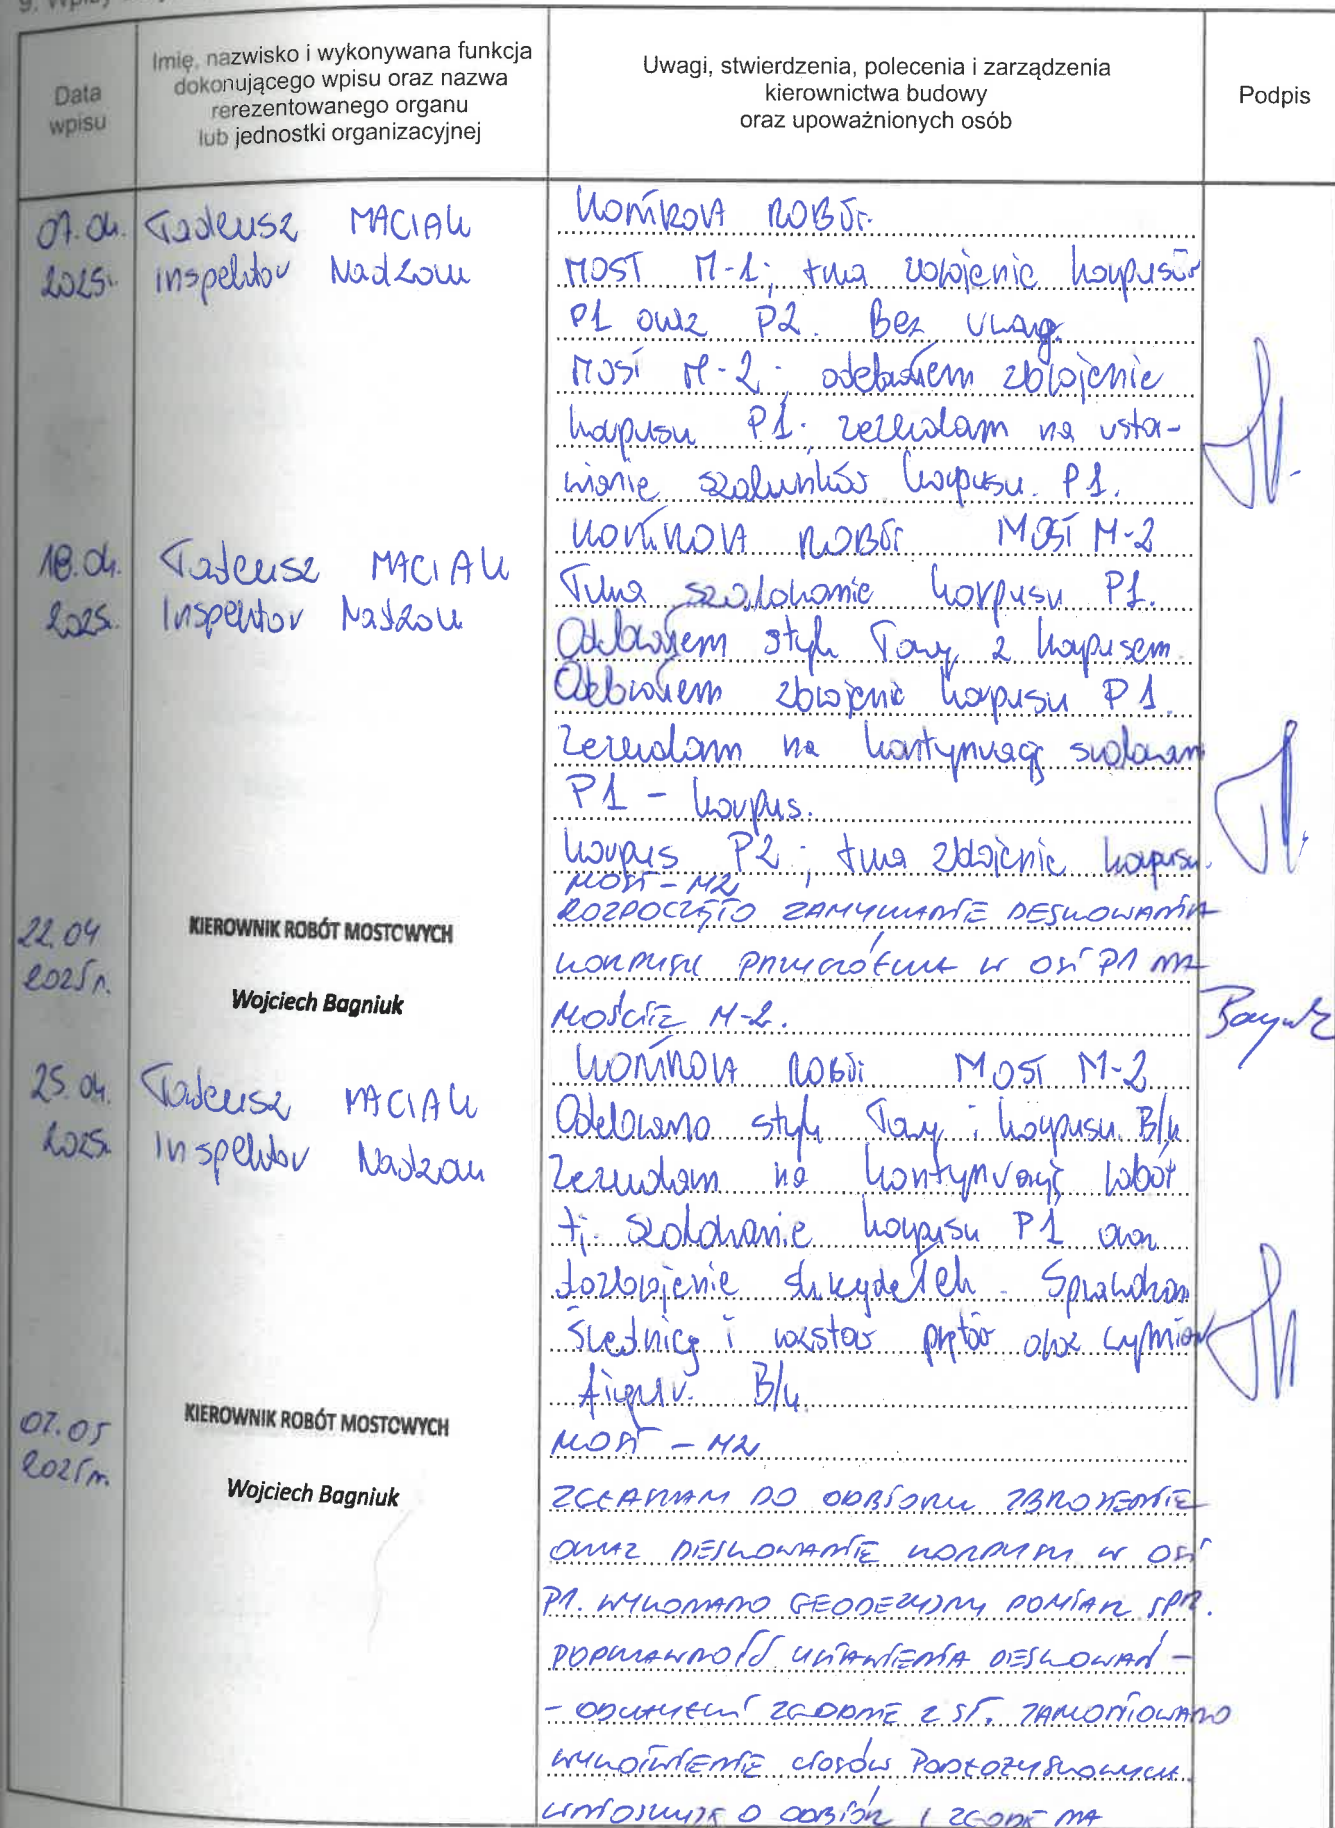 9. Wpisy
Data
wpisu
Imię, nazwisko i wykonywana funkcja
dokonującego wpisu oraz nazwa
rerezentowanego organu
lub jednostki organizacyjnej
Uwagi, stwierdzenia, polecenia i zarządzenia
kierownictwa budowy
oraz upoważnionych osób
Podpis
07.04.
2025r.
Tadeusz MACIAK
inspektor Nadzoru
KONTROLA ROBÓT.
MOST M-1; trwa zbrojenie korpusów
P1 oraz P2. Bez uwag.
MOST M-2; odebrałem zbrojenie
korpusu P1. zezwalam na usta-
wianie szalunków korpusu P1.
18.04.
2025.
Tadeusz MACIAK
Inspektor Nadzoru
KONTROLA ROBÓT MOST M-2
Trwa szalowanie korpusu P1.
Odebrałem styk ławy z korpusem.
Odebrałem zbrojenie korpusu P1.
Zezwalam na kontynuację szalowan
P1 - korpus.
korpus P2; trwa zbrojenie korpusu.
22.04
2025r.
KIEROWNIK ROBÓT MOSTOWYCH
Wojciech Bagniuk
MOST - M2
ROZPOCZĘTO ZAMYKANIE DESKOWANIA
KORPUSU PRZYCZÓŁKA W OSI P1 NA
MOŚCIE M-2.
25.04.
2025.
Tadeusz MACIAK
Inspektor Nadzoru
KONTROLA ROBÓT MOST M-2
Odebrano styk ławy i korpusu. B/u
Zezwalam na kontynuację robót
tj. szalowanie korpusu P1 oraz
dozbrojenie skrzydełek. Sprawdzam
średnicę i rozstaw prętów oraz wymiar
figur. B/u.
07.05
2025r.
KIEROWNIK ROBÓT MOSTOWYCH
Wojciech Bagniuk
MOST - M2
ZGŁASZAM DO ODBIORU ZBROJENIE
ORAZ DESKOWANIE KORPUSU W OSI
P1. WYKONANO GEODEZYJNY POMIAR SPR.
POPRAWNOŚĆ USTAWIENIA DESKOWAŃ -
- ODCHYŁKI ZGODNE Z ST. ZAMONTOWANO
WYKOTWIENIE CIOSÓW PODŁOŻYSKOWYCH.
WNIOSKUJĘ O ODBIÓR I ZGODĘ NA